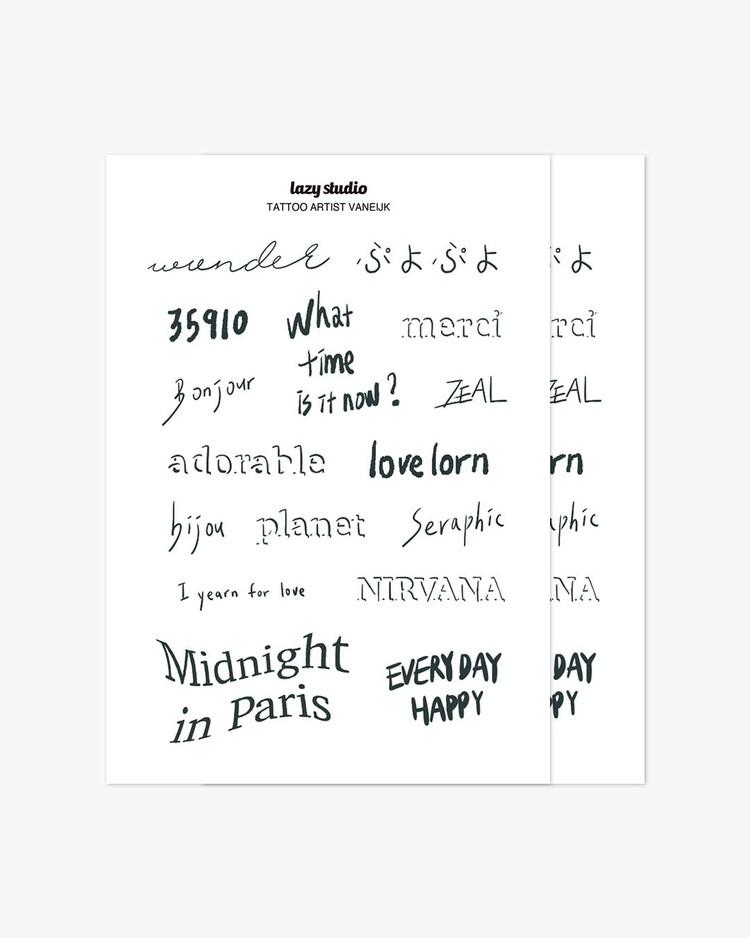 lazy studio
TATTOO ARTIST VANEIJK
wunder
ぷよぷよ
35910
What
time
is it now?
merci
Bonjour
ZEAL
adorable
lovelorn
bijou
planet
Seraphic
I yearn for love
NIRVANA
Midnight
in Paris
EVERYDAY
HAPPY
よ
rci
ZEAL
rn
phic
NA
DAY
PY